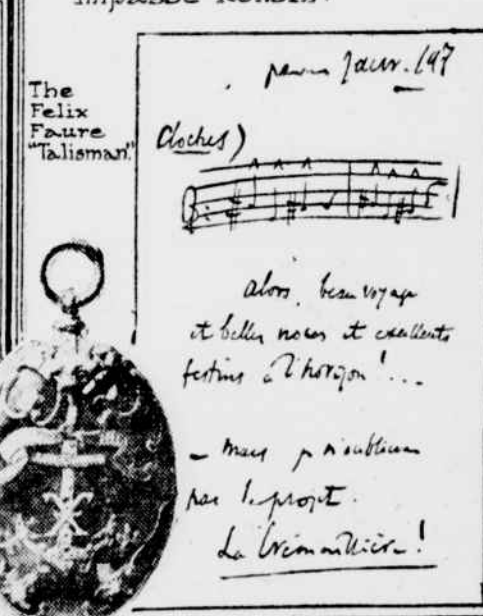 Impasse Ronsin.
The
Felix
Faure
"Talisman."
Janv. 197
Cloches)
Alors, beau voyage
et belles noces et excellents
festins à l'horizon!...
– mais n'oublions
pas le projet.
La Crémaillère!